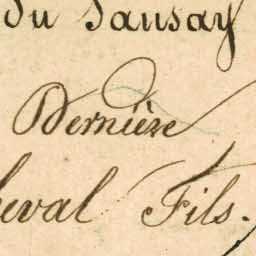 du Sausay
Dernière
Fils.